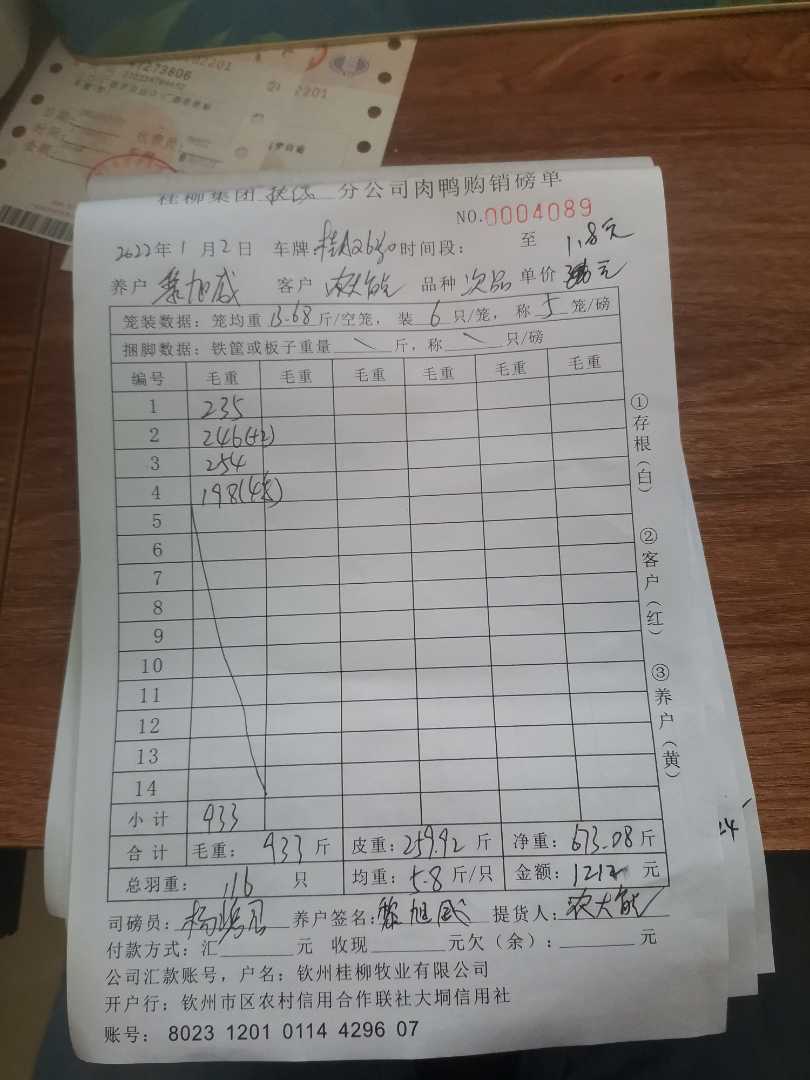 2201
47273606
2201
桂柳集团扶绥分公司肉鸭购销磅单
NO.0004089
2022年1月2日 车牌 时间段: 至 1.8元
养户 黎旭威 客户 农大能 品种 次品 单价 元
笼装数据:笼均重13.68斤/空笼,装6只/笼,称5笼/磅
捆脚数据:铁筐或板子重量\斤,称\只/磅
编号 毛重 毛重 毛重 毛重 毛重 毛重
1 235
2 246(+2)
3 254
4 198(4笼)
5
6
7
8
9
10
11
12
13
14
小计 933
合计 毛重: 933 斤 皮重:259.92 斤 净重:673.08斤
总羽重: 116 只 均重:5.8斤/只 金额:1212 元
司磅员: 养户签名:黎旭威 提货人:农大能
付款方式:汇 元 收现 元欠(余): 元
公司汇款账号,户名:钦州桂柳牧业有限公司
开户行:钦州市区农村信用合作联社大垌信用社
账号: 8023 1201 0114 4296 07
①存根(白)
②客户(红)
③养户(黄)
24